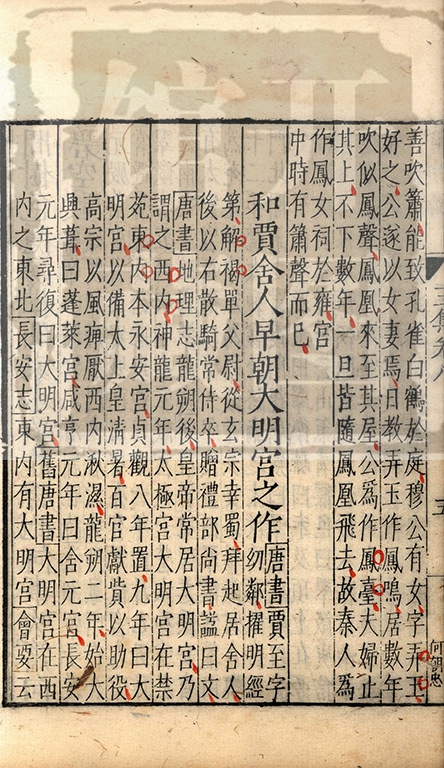 善吹簫能致孔雀白鶴於庭穆公有女字弄玉
好之公遂以女妻焉日教弄玉作鳳鳴居數年
吹似鳳聲鳳凰來至其屋公爲作鳳臺夫婦止
其上不下數年一旦皆隨鳳凰飛去故秦人爲
作鳳女祠於雍宮
中時有簫聲而已
和賈舍人早朝大明宮之作
唐書賈至字
幼鄰擢明經
第解褐單父尉從玄宗幸蜀拜起居舍人
後以右散騎常侍卒贈禮部尚書諡曰文
唐書地理志龍朔後皇帝常居大明宮乃
謂之西內神龍元年太極宮大明宮在禁
苑東內本永安宮貞觀八年置九年曰大
明宮以備太上皇清暑百官獻貲以助役
高宗以風痺厭西內湫濕龍朔二年始大
興葺曰蓬萊宮咸亨元年曰含元宮長安
元年尋復曰大明宮舊唐書大明宮在西
內之東北長安志東內有大明宮會要云
五